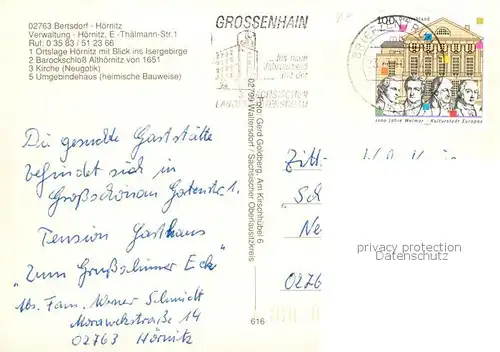 02763 Bertsdorf - Hörnitz
Verwaltung - Hörnitz, E.-Thälmann-Str.1
Ruf: 0 35 83 / 51 23 66
1 Ortslage Hörnitz mit Blick ins Isergebirge
2 Barockschloß Althörnitz von 1651
3 Kirche (Neugotik)
5 Umgebindehaus (heimische Bauweise)
GROSSENHAIN
SÄCHSISCHEN
LANDESGARTENSCHAU
100
Deutschland
1100 Jahre Weimar - Kulturstadt Europas
BRIEFZENTRUM
Foto: Gerd Goldberg, Am Kirschhübel 6
02799 Waltersdorf / Sächsischer Oberlausitzkreis
616
Die gesuchte Gaststätte
befindet sich in
Großschönau
Pension Gasthaus
"Zum Eck"
Abs. Fam. Werner Schmidt
Morawekstraße 14
02763 Hörnitz
Zitt
0276
privacy protection
AKPool.de